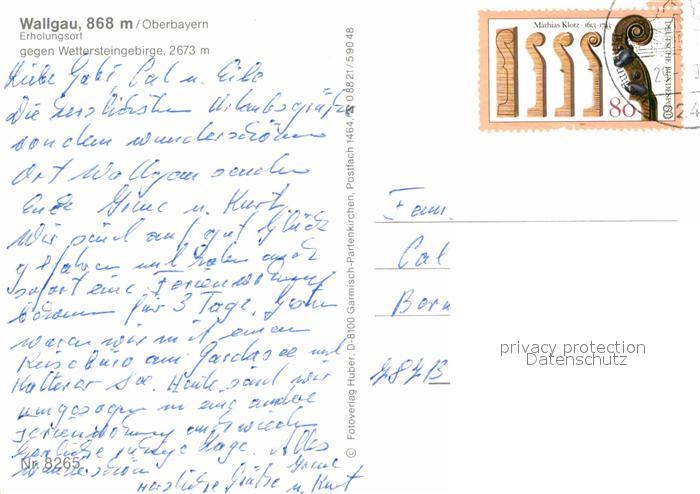 Wallgau, 868 m / Oberbayern
Erholungsort
gegen Wettersteingebirge, 2673 m
Liebe Gabi Cal u. Eike
Die herzlichsten Urlaubsgrüße
von dem wunderschönen
Ort Wallgau senden
Euch u. Kurt.
Wir sind auf gut Glück
gefahren und haben auch
sofort eine Ferienwohnung
bekommen für 3 Tage. Gestern
waren wir mit einem
Reisebüro am Gardasee und
Kalterer See. Heute sind wir
umgezogen in eine andere
Ferienwohnung und wieder
herrliche Lage. Alles
wunderschön
Herzliche Grüße u. Kurt
Nr. 8265
© Fotoverlag Huber, D-8100 Garmisch-Partenkirchen, Postfach 1464, ☎ 0 88 21 / 5 90 48
Mathias Klotz · 1653-1743
DEUTSCHE BUNDESPOST
80
Fam.
Cal
Born
7873
privacy protection
Datenschutz